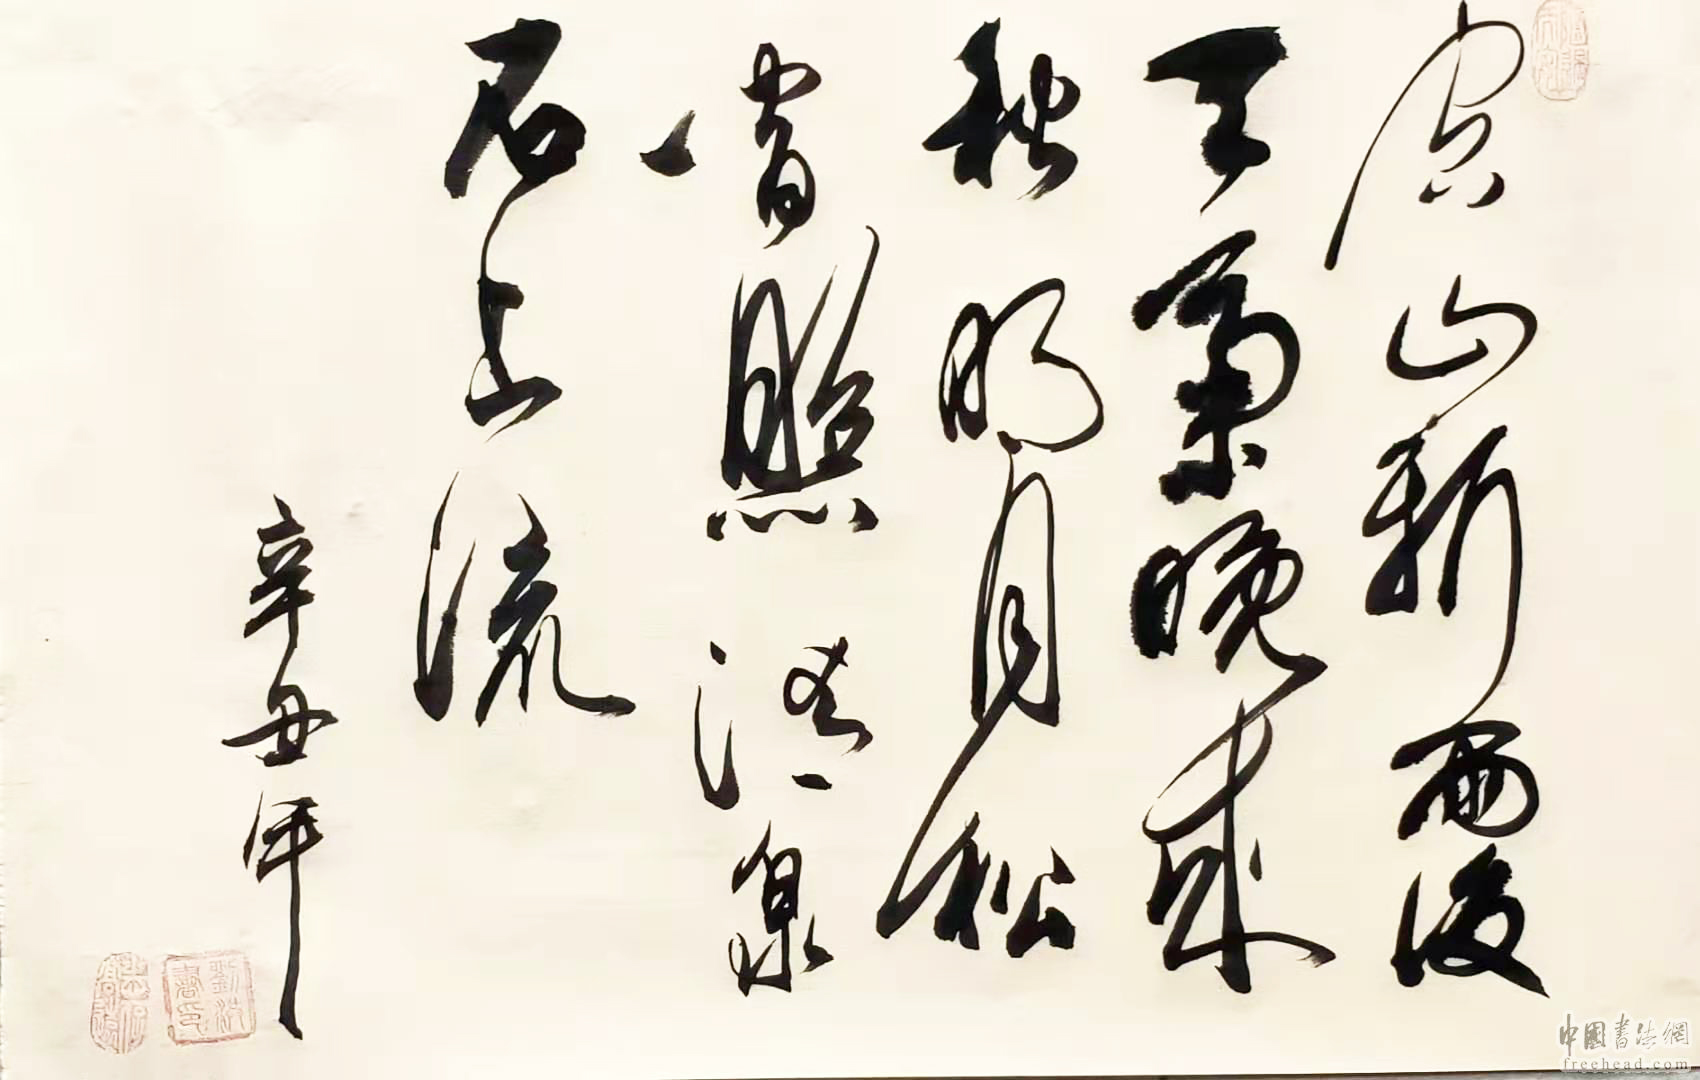 空山新雨後
天氣晚來
秋明月松
間照清泉
石上流
辛丑年
劉洪
書印
中國書法網
freehead.com